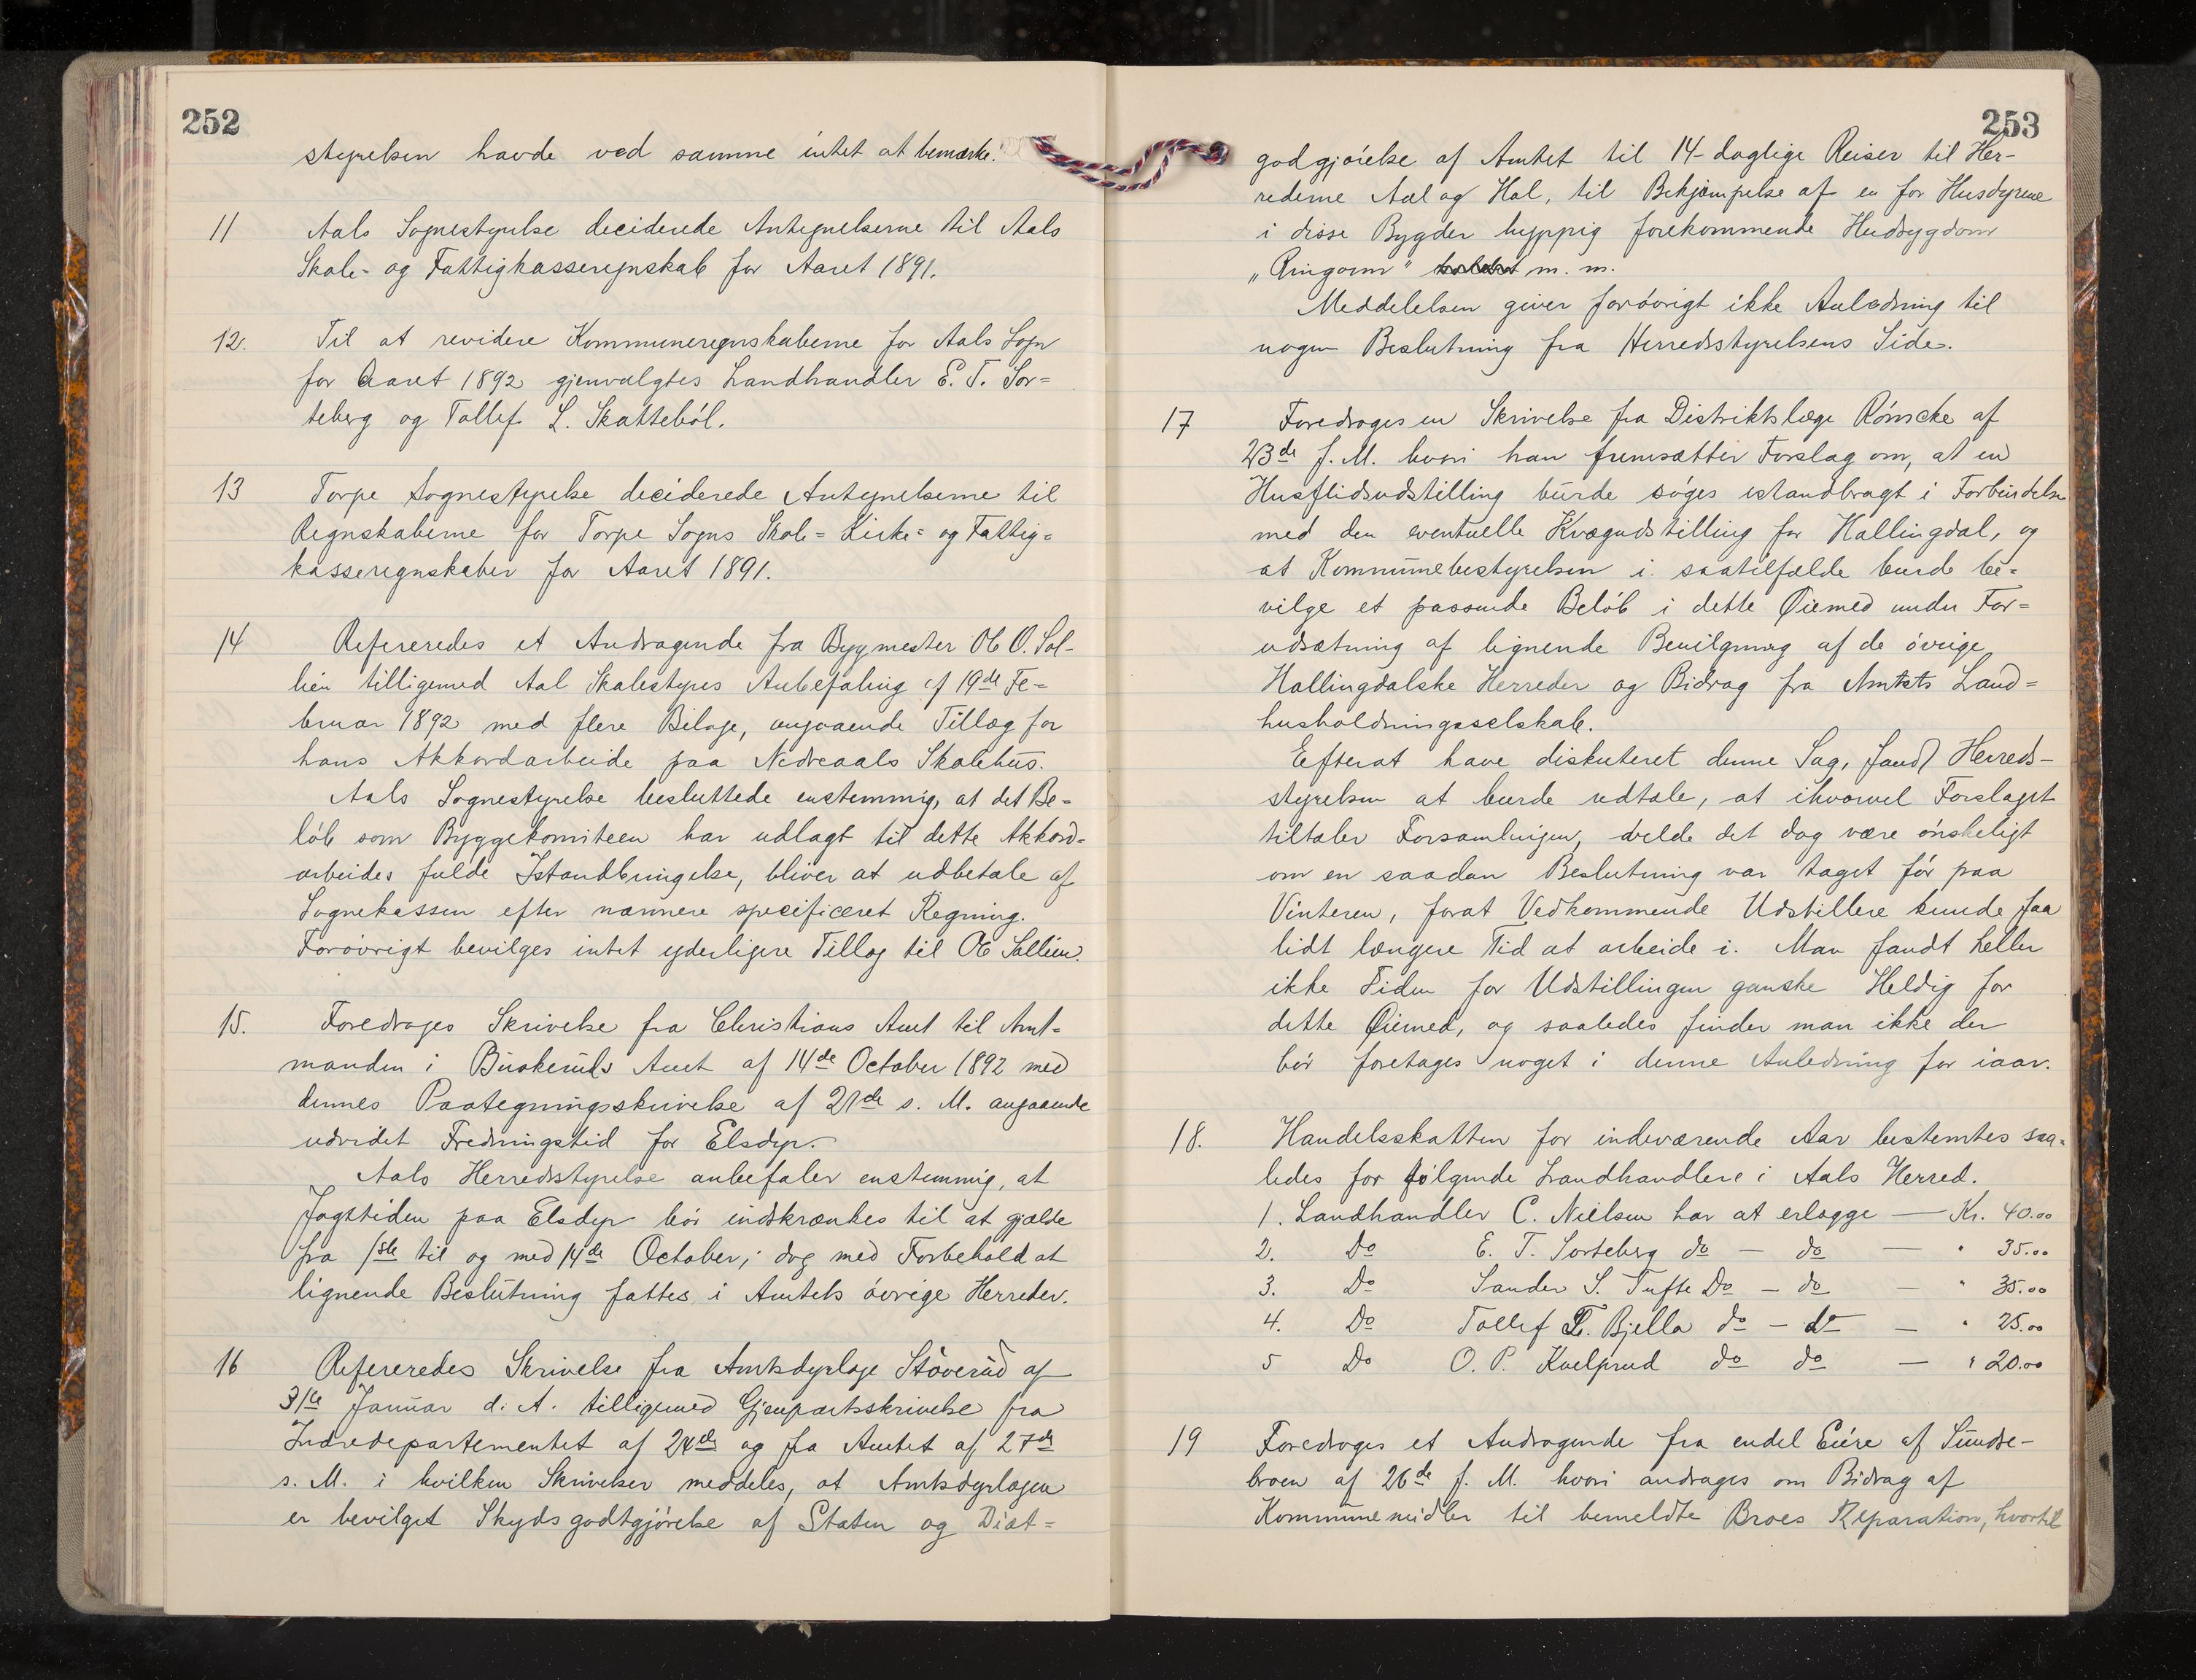 252
styrelsen havde ved samme intet at bemærke.
11 Aals Sognestyrelse deciderede Antegnelserne til Aals
Skole- og Fattigkasseregnskab for Aaret 1891.
12. Til at revidere Kommuneregnskaberne for Aals Sogn
for Aaret 1892 gjenvalgtes Landhandler E. T. Sor=
teberg og Tollef L. Skatteból.
13 Torpe Sognestyrelse deciderede Antegnelserne til
Regnskaberne for Torpe Sogns Skole= Kirke= og Fattig=
kasseregnskaber for Aaret 1891.
14 Refereredes et Andragende fra Bygmester Ole O. Sol-
lien tilligemed Aal Skolestyres Anbefaling af 19de Fe=
bruar 1892 med flere Bilage, angaaende Tillæg for
hans Akkordarbeide paa Nedreaals Skolehus.
Aals Sognestyrelse besluttede enstemmig, at det Be=
löb som Byggekomiteen har udlagt til dette Akkord=
arbeides fulde Istandbringelse, bliver at udbetale af
Sognekassen efter nærmere specificeret Regning.
Foróvrigt bevilges intet yderligere Tillæg til Ole Sollien.
15. Foredroges Skrivelse fra Christians Amt til Amt=
manden i Buskeruds Amt af 14de October 1892 med
dennes Paategningsskrivelse af 21de s. M. angaaende
udvidet Fredningstid for Elsdyr.
Aals Herredsstyrelse anbefaler enstemmig, at
Jagttiden paa Elsdyr bör indskrænkes til at gjælde
fra 1ste til og med 14de October; dog med Forbehold at
lignende Beslutning fattes i Amtets óvrige Herreder.
16 Refereredes Skrivelse fra Amtsdyrlæge Stöverud af
31te Januar d. A. tilligemed Gjenpartsskrivelse fra
Indredepartementet af 24de og fra Amtet af 27de
s. M. i hvilken Skrivelser meddeles, at Amtsdyrlægen
er bevilget Skydsgodtgjörelse af Staten og Diæt=
253
godgjörelse af Amtet til 14-daglige Reiser til Her-
rederne Aal og Hol, til Bekjæmpelse af en for Husdyrene
i disse Bygder hyppig forekommende Hudsygdom
„Ringorm" m. m.
Meddelelsen giver foróvrigt ikke Anledning til
nogen Beslutning fra Herredsstyrelsens Side.
17 Foredroges en Skrivelse fra Distriktslæge Rönscke af
23de f. M. hvori han fremsætter Forslag om, at en
Husflidsudstilling burde söges istandbragt i Forbindelse
med den eventuelle Kvægudstilling for Hallingdal, og
at Kommunebestyrelsen i saatilfælde burde be=
vilge et passende Belób i dette Øiemed under For=
udsætning af lignende Bevilgning af de óvrige
Hallingdalske Herreder og Bidrag fra Amtets Land=
husholdningsselskab.
Efterat have diskuteret denne Sag, fandt Herreds-
styrelsen at burde udtale, at ihvorvel Forslaget
tiltaler Forsamlingen, vilde det dog være ónskeligt
om en saadan Beslutning var taget fór paa
Vinteren, forat Vedkommende Udstillere kunde faa
lidt længere Tid at arbeide i. Man fandt heller
ikke Tiden for Udstillingen ganske Heldig for
dette Øiemed, og saaledes finder man ikke der
bör foretages noget i denne Anledning for iaar.
18. Handelsskatten for indeværende Aar bestemtes saa=
ledes for fölgende Landhandlere i Aals Herred.
1. Landhandler C. Nielsen har at erlægge — Kr. 40.00
2. Do E. T. Sorteberg do — do — " 35.00
3. Do Sander S. Tufte Do — do — " 35.00
4. Do Tollef T. Bjella do — do — " 25.00
5 Do O. P. Kvelprud do do — " 20.00
19 Foredroges et Andragende fra endel Eiere af Sundre-
broen af 26de f. M. hvori andrages om Bidrag af
Kommunemidler til bemeldte Broes Reparation, hvortil